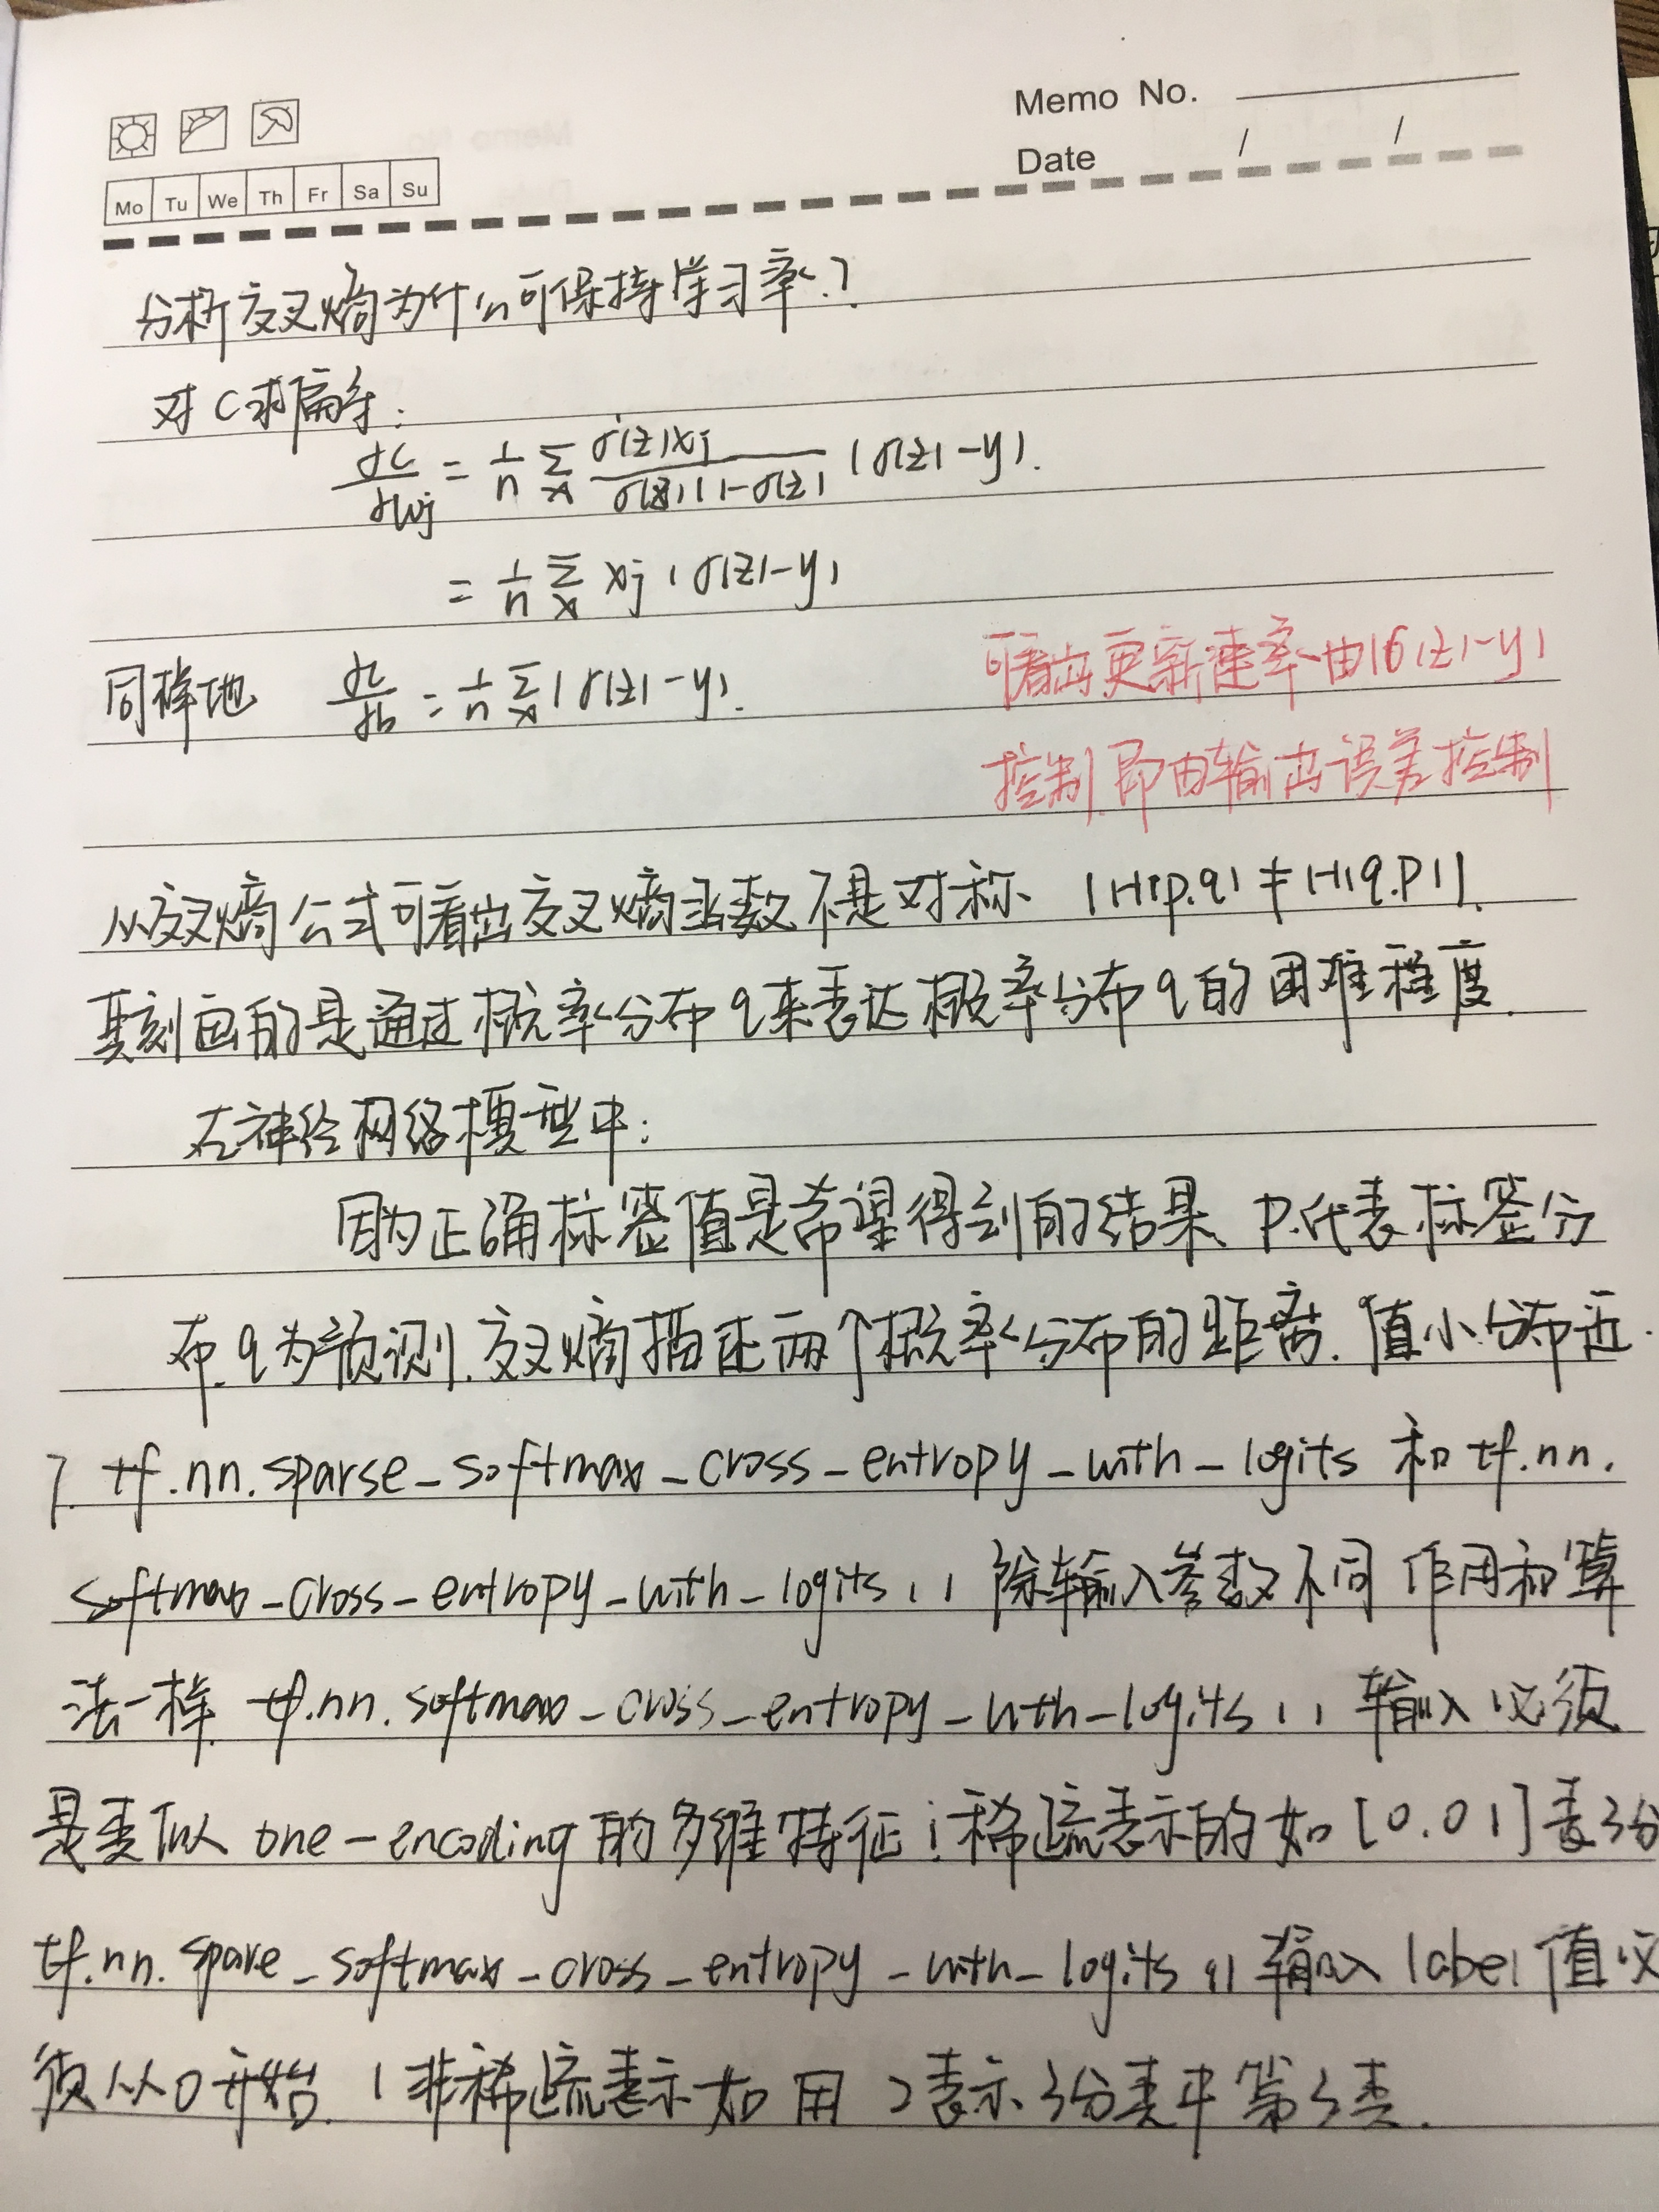 Memo No.
Date / /
Mo Tu We Th Fr Sa Su
分析交叉熵为什么可保持学习率？
对C求偏导：
∂C/∂wj = 1/n Σx σ'(z)xj / σ(z)(1-σ(z)) (σ(z)-y).
= 1/n Σx xj (σ(z)-y)
同样地 ∂C/∂b = 1/n Σx (σ(z)-y).
可看出更新速率由(σ(z)-y)
控制,即由输出误差控制
从交叉熵公式可看出交叉熵函数不是对称 (H(p.q) ≠ H(q.p)).
其刻画的是通过概率分布q来表达概率分布q的困难程度.
在神经网络模型中：
因为正确标签值是希望得到的结果、P.代表标签分
布.q为预测.交叉熵描述两个概率分布的距离.值小分布近.
7. tf.nn.sparse_softmax_cross_entropy_with_logits 和 tf.nn.
softmax_cross_entropy_with_logits() 除输入参数不同 作用和算
法一样. tf.nn.softmax_cross_entropy_with_logits() 输入必须
是类似 one-encoding 的多维特征;稀疏表示的如 [0.01] 表3分
tf.nn.spare_softmax_cross_entropy_with_logits() 输入label值必
须从0开始. (非稀疏表示如 用 2表示3分类中第3类.